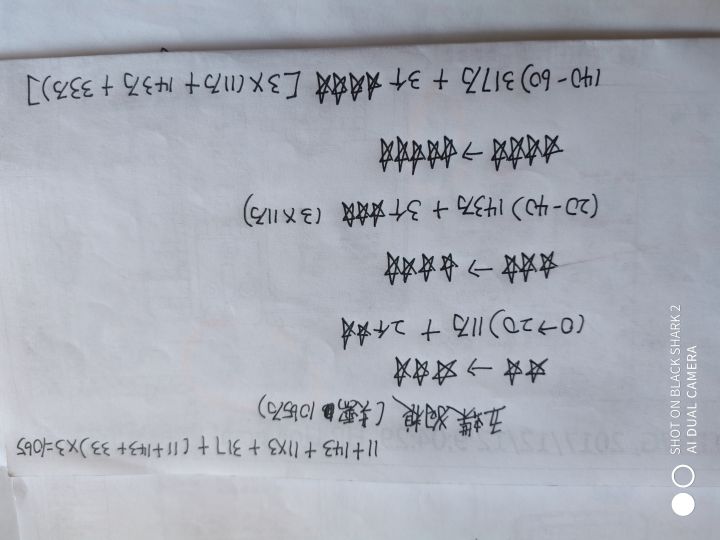 11+143+11×3+317+(11+143+33)×3=1065
五 (共需 1065万)
☆☆☆→☆☆☆☆
(0→20) 11万 + 2个☆☆☆
☆☆☆☆→☆☆☆☆☆
(20-40) 143万 + 3个☆☆☆☆ (3×11万)
☆☆☆☆☆→☆☆☆☆☆☆
(40-60) 317万 + 3个☆☆☆☆☆ [3×(11万+143万+33万)]
SHOT ON BLACK SHARK 2
AI DUAL CAMERA